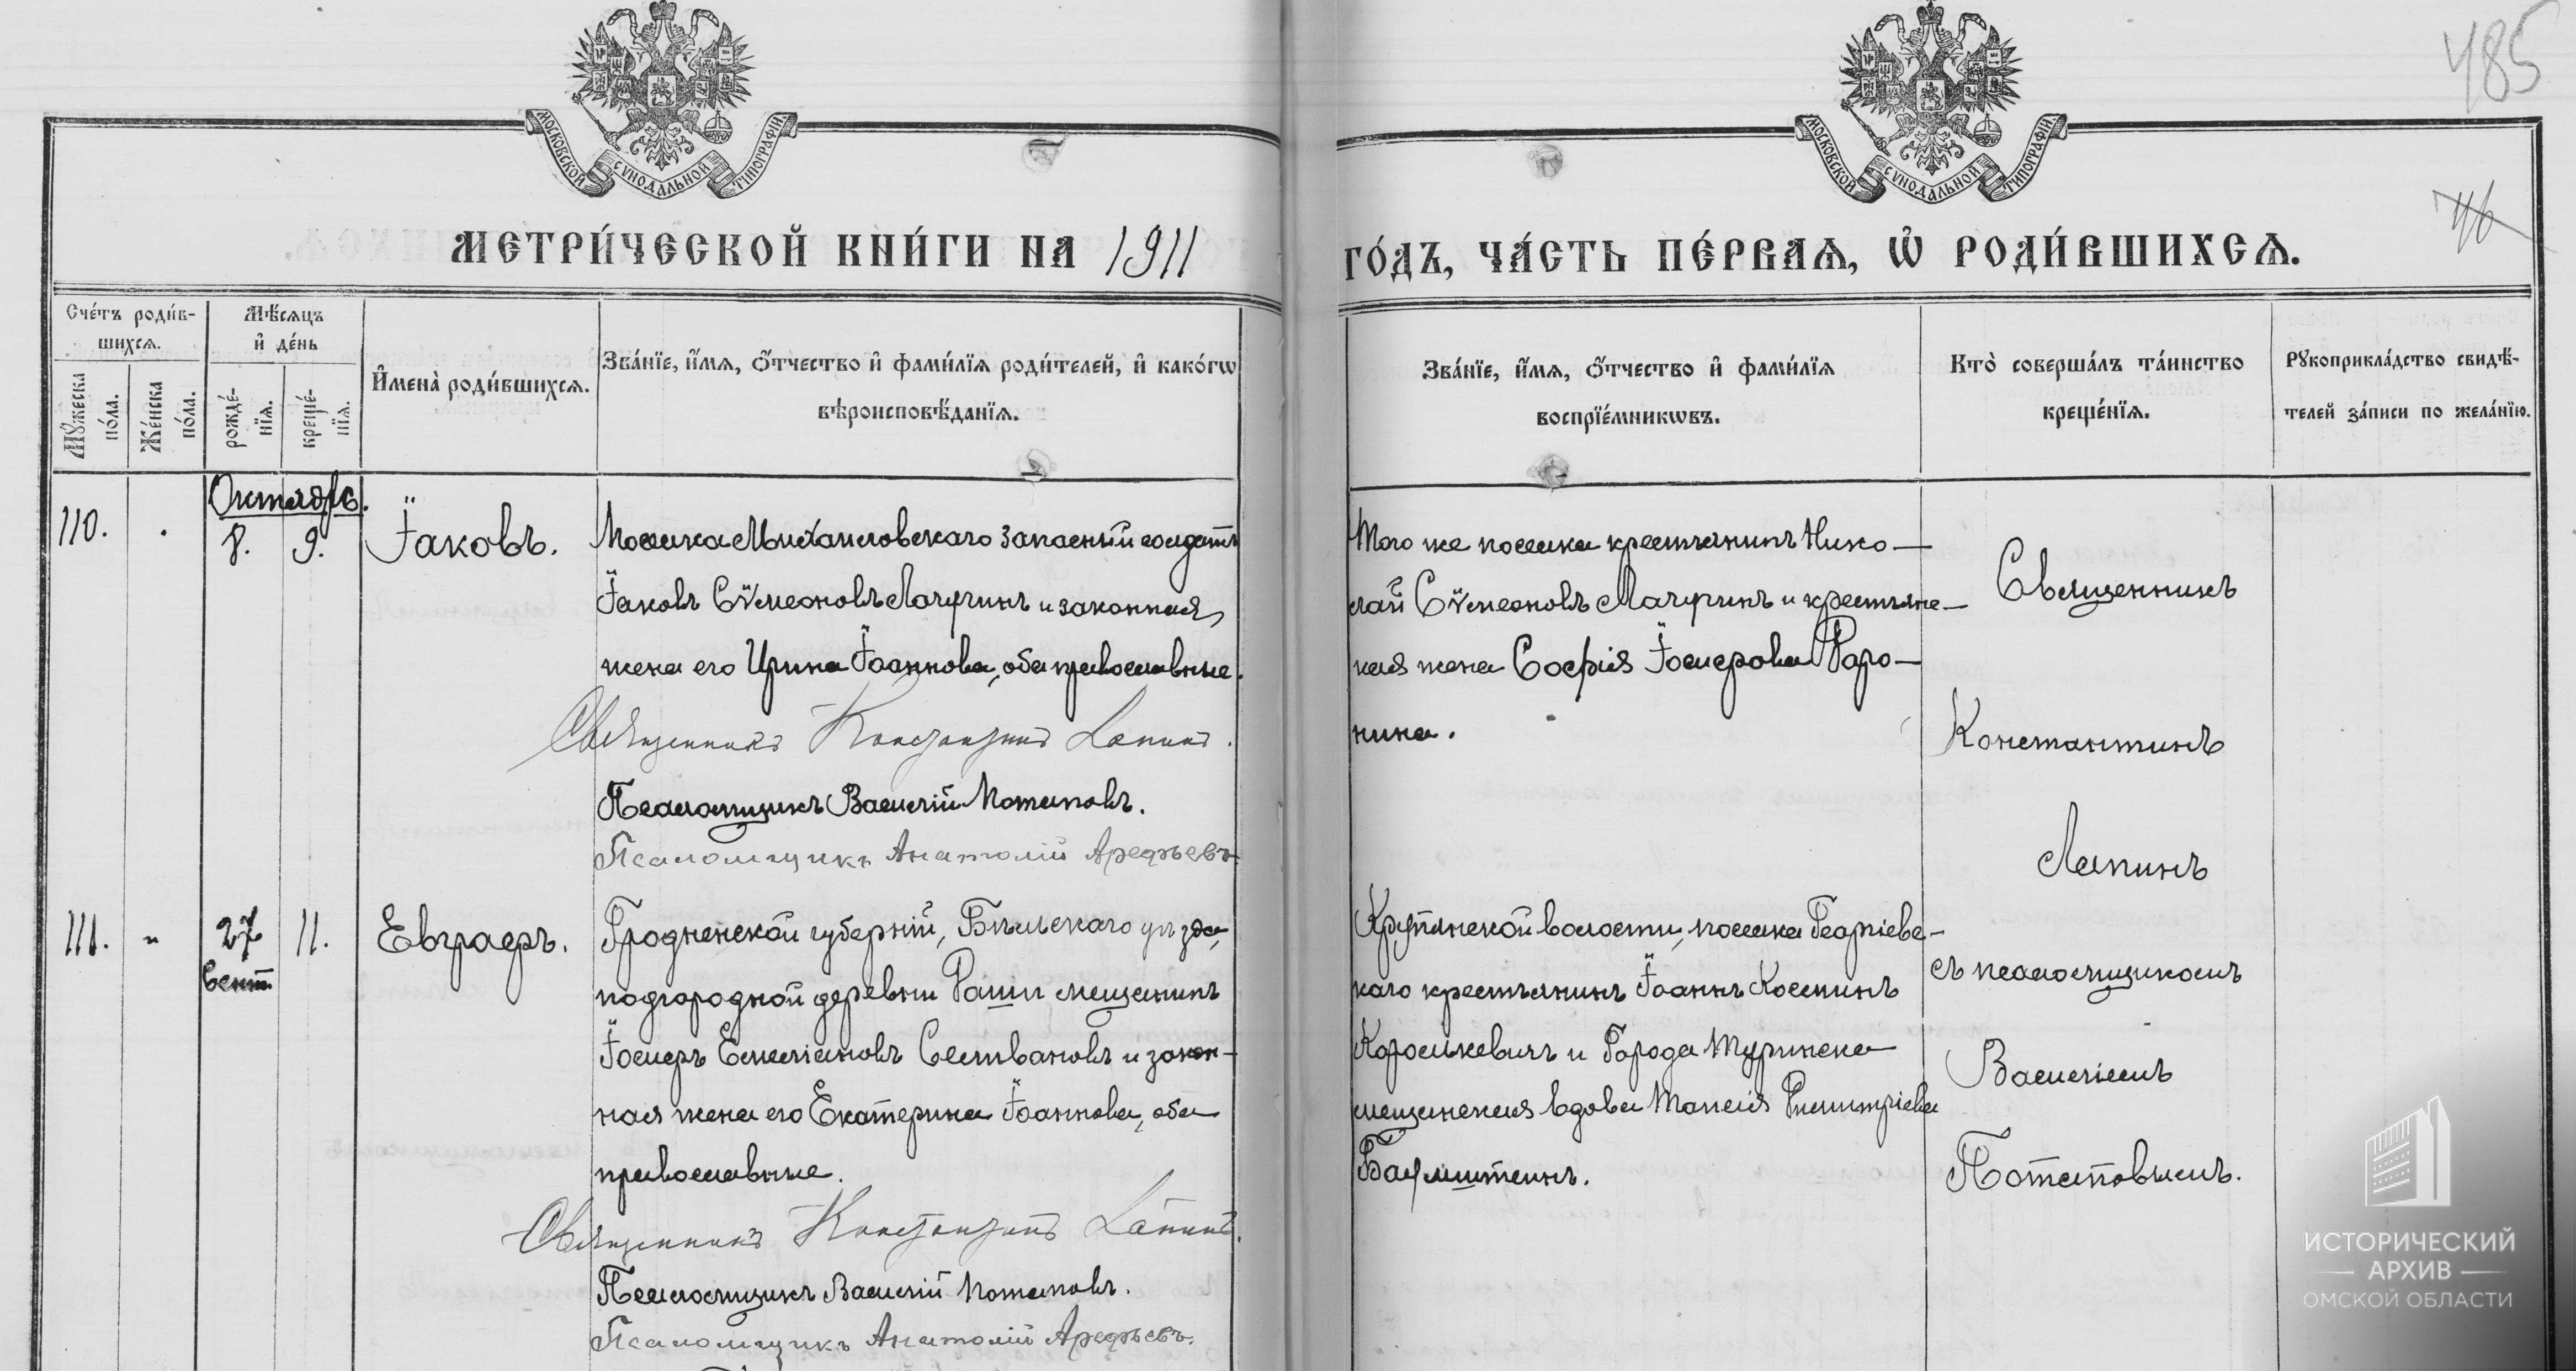 485
46
МОСКОВСКОЙ СѴНОДАЛЬНОЙ ТИПОГРАФІИ
МОСКОВСКОЙ СѴНОДАЛЬНОЙ ТИПОГРАФІИ
МЕТРИ́ЧЕСКОЙ КНИ́ГИ НА 1911
ГО́ДЪ, ЧА́СТЬ ПЕ́РВАѦ, Ѽ РОДИ́ВШИХСѦ.
Сче́тъ роди́в-
шихсѧ.
Мꙋ́жеска по́ла.
Же́нска по́ла.
Мѣ́сѧцъ
и҆ де́нь
рожде́-нїѧ.
креще́-нїѧ.
И҆мена̀ роди́вшихсѧ.
Зва́нїе, и҆́мѧ, ѻ҆́тчество и҆ фами́лїѧ роди́телей, и҆ како́гѡ
вѣроисповѣ́данїѧ.
Зва́нїе, и҆́мѧ, ѻ҆́тчество и҆ фами́лїѧ
воспрїе́мникѡвъ.
Кто̀ соверша́лъ та́инство
креще́нїѧ.
Рꙋкоприкла́дство свидѣ́-
телей за́писи по жела́нїю.
Октябрь.
110. . 8. 9. Іаковъ.
Поселка Михаиловскаго запасный солдатъ
Іаковъ Сѵмеоновъ Мачугинъ и законная
жена его Ирина Іоаннова, оба православные.
Священникъ Константинъ Лапинъ.
Псаломщикъ Василій Потаповъ.
Псаломщикъ Анатолій Арефьевъ.
Того же поселка крестьянинъ Нико-
лай Сѵмеоновъ Мачугинъ и крестьянс-
кая жена Софія Іосифова Фаро-
нина.
Священникъ
Константинъ
Лапинъ
съ псаломщикомъ
Василіемъ
Потаповымъ.
111. „ 27 11. Евграфъ.
Сент.
Гродненской губерніи, Бѣльскаго уѣзда,
подгородной деревни мещанинъ
Іосифъ Емеліановъ Селивановъ и закон-
ная жена его Екатерина Іоаннова, оба
православные.
Священникъ Константинъ Лапинъ.
Псаломщикъ Василій Потаповъ.
Псаломщикъ Анатолій Арефьевъ.
Крупянской волости, поселка Георгіевс-
каго крестьянинъ Іоаннъ Косминъ
Королькевичъ и города Туринска
мещанская вдова Таисія Димитріева
Баумштейнъ.
ИСТОРИЧЕСКИЙ
АРХИВ
ОМСКОЙ ОБЛАСТИ